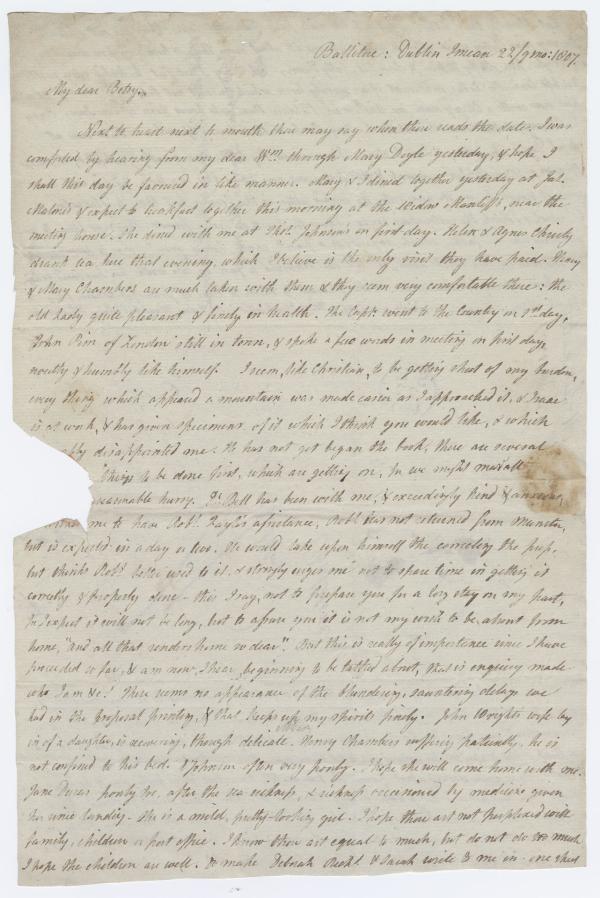 Ballitore: Dublin I mean 22/9mo: 1807.
My dear Betsy,
Next to heart next to mouth thou may say when thou reads the date. I was
comforted by hearing from my dear Wm. through Mary Doyle yesterday, & hope I
shall this day be favoured in like manner. Mary & I dined together yesterday at Jas.
Malone's & expect to breakfast together this morning at the widow Manliff's, near the
meeting house. She dined with me at Thos. Johnson's on first-day. Helen & Agnes
drank tea here that evening, which I believe is the only visit they have paid. Henry
& Mary Chambers are much taken with them & they seem very comfortable there: the
old Lady quite pleasant & finely in health. The Captn. went to the Country on 1st day,
John Pim of London still in town, & spoke a few words in meeting on first day,
neatly & humbly like himself. I seem, like Christian, to be getting shut of my burden,
every thing which appeared a mountain was made easier as I approached it. & Isaac
is at work, & has given specimens of it which I think you would like, & which
disappointed me. He has not yet began the book, there are several
things to be done first, which are getting on, tho we might mar all
unreasonable hurry. Dr. Bell has been with me, & exceedingly kind & anxious,
me to have Robt. Taylor's assistance, Robt. has not returned from Munster,
but is expected in a day or two. He would take upon himself the correcting the press,
but thinks Robt. better used to it, & strongly urges me not to spare time in getting it
correctly & properly done - this I say, not to prepare you for a long stay on my part,
for I expect it will not be long, but to assure you it is not my wish to be absent from
home, "and all that renders home so dear". But this is really of importance since I have
proceeded so far, & am now, I hear, beginning to be talked about, that is enquiry made
who I am &c. There seems no appearance of the blundering, sauntering delays we
had in the proposal printing, & that keeps up my spirits finely. John Wright's wife lay
in of a daughter, is recovering, though delicate. Henry Chambers suffering patiently, he is
not confined to his bed. Johnson often very poorly. I hope she will come home with me.
Jane poorly too, after the sea sickness, & sickness occasioned by medicine given
her since landing. She is a mild, pretty-looking girl. I hope thou art not perplexed with
family, children or post office. I know thou art equal to much, but do not do too much
I hope the children are well. Do make Deborah & Sarah write to me in one sheet